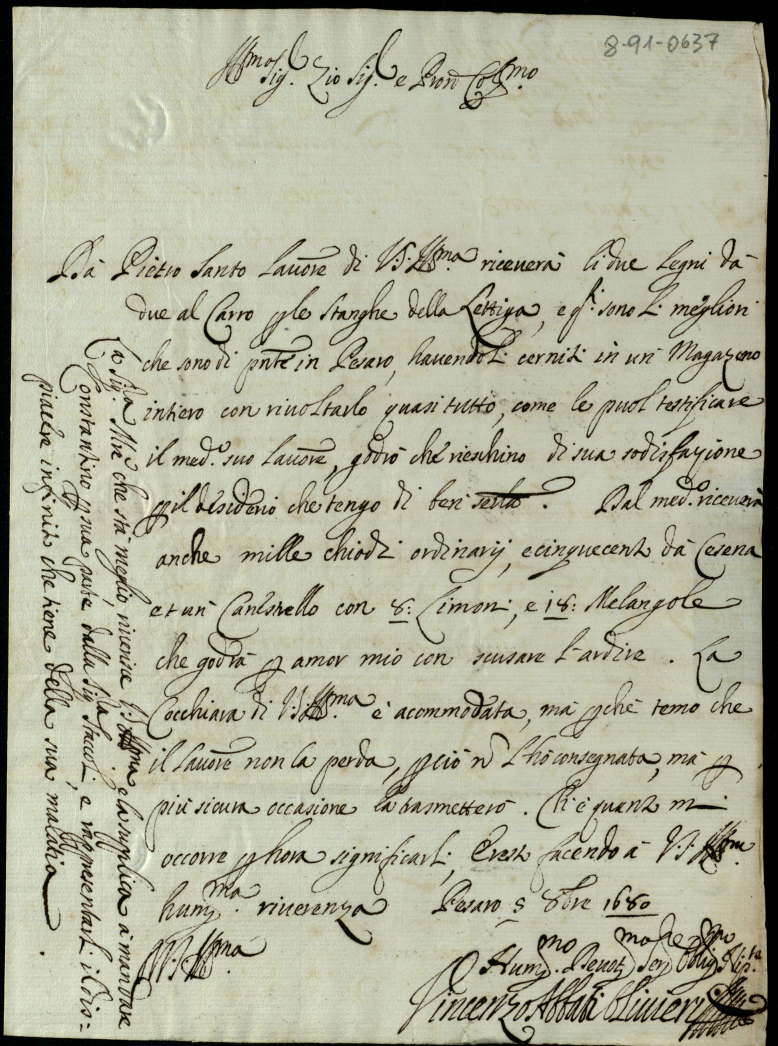 8-91-0637
Ill.mo Sig.r Zio Sig.r e Pron Col.mo
Dà Pietro Santo Lauore di V.S. Ill.ma riceuerà li due Legni dà
due al Carro ple stanghe della Lettiga, e q.ti sono li megliori
che sono di pnte in Pesaro, hauendoli cerniti in un' Magazeno
intiero con riuoltarlo quasi tutto, come le puol testificare
il med.o suo Lauore, godrò che rieschino di sua sodisfazione
p il desiderio che tengo di ben seru.la. Dal med.o riceuerà
anche mille chiodi ordinarij, e cinquecento dà Cesena
et un' Canestrello con 8: Limoni, e 18: Melangole
che godrà p amor mio con scusare l'ardire. La
Cocchiara di V.S. Ill.ma è acommodata, mà pche temo che
il Lauore non la perda, pciò n l'hò consegnata, mà p
più sicura occasione la trasmetterò. Ch'è quanto mi
occorre p hora significarli, e resto facendo à V.S. Ill.ma
hum.ma riuerenza Pesaro 5 8bre 1680
D V.S. Ill.ma
Hum.mo Deuot.mo Ser.e Oblig.mo Nip.te
Vincenzo Abbati Oliuieri
La Sig.ra Mre che stà meglio riuerisce V.S. Ill.ma e la supplica à mandare
Constantino p sua parte dalla Sig.ra Staccoli, e rappresentarli il dis-
piacere infinito che tiene della sua malatia.